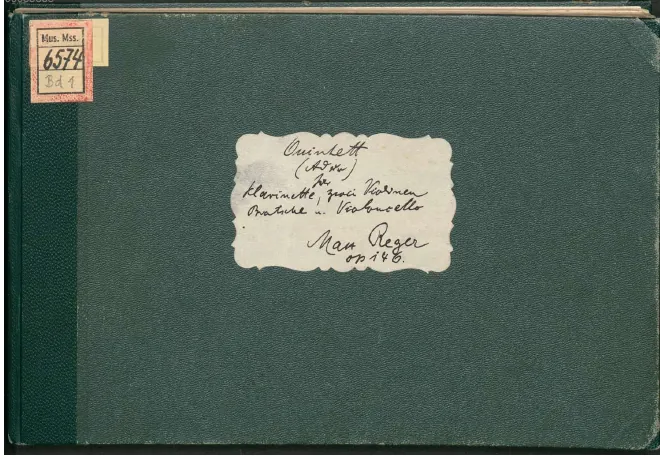 Mus. Mss.
6574
Bd 1
Quintett
(A dur)
für
Klarinette, zwei Violinen
Bratsche u. Violoncello
Max Reger
op 146.